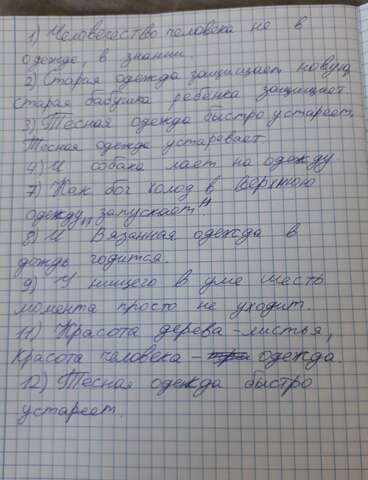 1) Человечество человека не в
одежде, в знании.
2) Старая одежда защищает новую,
старая бабушка ребёнка защищает
3) Тесная одежда быстро устареет,
Тесная одежда устаревает.
4) И собака лает на одежду
7) Как бог холод в верхнюю
одежду "запускает"
8) И Вязанная одежда в
дождь годится.
9) У нищего в уме шесть
момента просто не уходит.
11) Красота дерева - листья,
Красота человека - одежда.
12) Тесная одежда быстро
устареет.